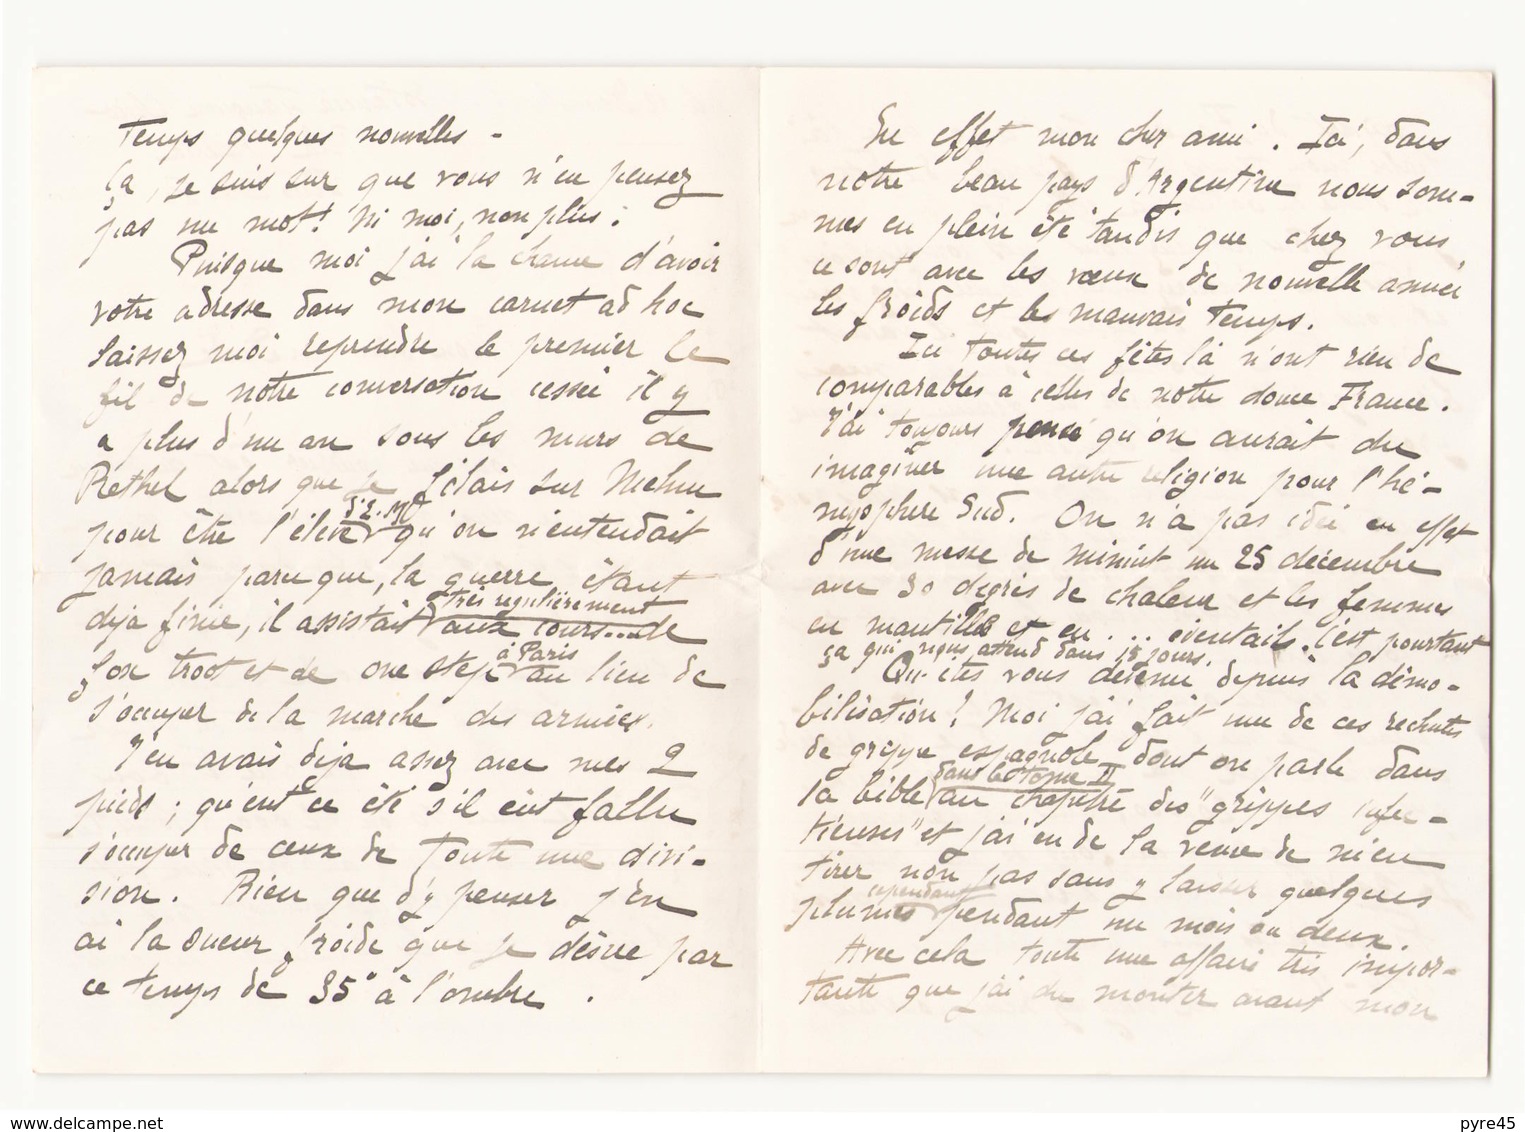 Temps quelques nouvelles -
Ça, je suis sur que vous n'en pensez
pas un mot! Ni moi, non plus.
Puisque moi j'ai la chance d'avoir
votre adresse dans mon carnet ad hoc
laissez moi reprendre le premier le
fil de notre conversation cessée il y
a plus d'un an sous les murs de
Rethel alors que je filais sur Melun
pour être l'élève d'E.M. qu'on n'entendait
jamais parceque, la guerre étant
deja finie, il assistait très regulièrement aux cours....de
fox trott et de one step à Paris au lieu de
s'occuper de la marche des armées.
J'en avais deja assez avec mes 2
pieds; qu'eut ce été s'il eut fallu
s'occuper de ceux de toute une divi-
sion. Rien que d'y penser j'en
ai la sueur froide que je désire par
ce temps de 35° à l'ombre.
En effet mon cher ami. Ici, dans
notre beau pays d'Argentine nous som-
mes en plein été tandis que chez vous
ce sont avec les vœux de nouvelle année
les froids et les mauvais temps.
Ici toutes ces fêtes là n'ont rien de
comparables à celles de notre douce France.
J'ai toujours pensé qu'on aurait du
imaginer une autre religion pour l'hé-
misphere Sud. On n'a pas idée en effet
d'une messe de minuit un 25 décembre
avec 30 degrés de chaleur et les femmes
en mantilles et en... eventails. C'est pourtant
ça qui nous attend dans 15 jours.
Qu'êtes vous devenu depuis la démo-
bilisation! Moi j'ai fait une de ces rechutes
de grippe espagnole dont on parle dans
la bible dans le tome II au chapitre des "grippes infec-
tieuses" et j'ai eu de la veine de m'en
tirer non pas sans y laisser quelques
plumes cependant pendant un mois ou deux.
Avec cela toute une affaire très impor-
tante que j'ai du monter avant mon
www.delcampe.net
pyre45